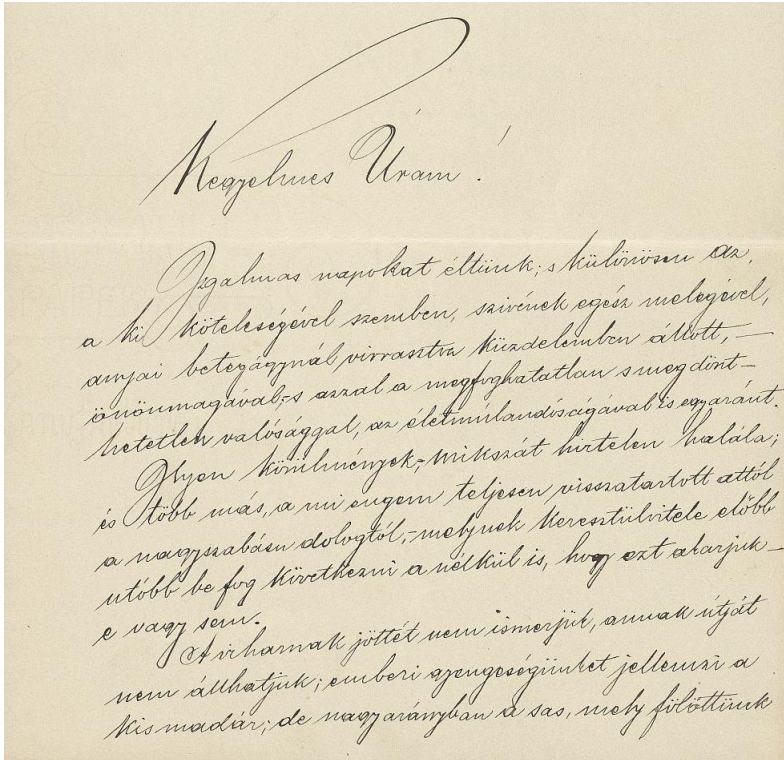 Kegyelmes Uram!
Izgalmas napokat éltünk; s különösen az,
a ki köteleségével szemben, szivének egész melegével,
anyai betegágynál virrasztva küzdelemben állott, —
önönmagával,- s azzal a megfoghatatlan s megdönt-
hetetlen valósággal, az életmulandóságával is egyaránt.
Ilyen körülmények,- Mikszát hirtelen halála;
és több más, a mi engem teljesen visszatartott attól
a nagyszabásu dologtól,- melynek keresztülvitele előbb
utóbb be fog következni a nélkül is, hogy ezt akarjuk-
e vagy sem.
A viharnak jöttét nem ismerjük, annak útját
nem állhatjuk; emberi gyengeségünket jellemzi a
kis madár; de nagyarányban a sas, mely fölöttünk